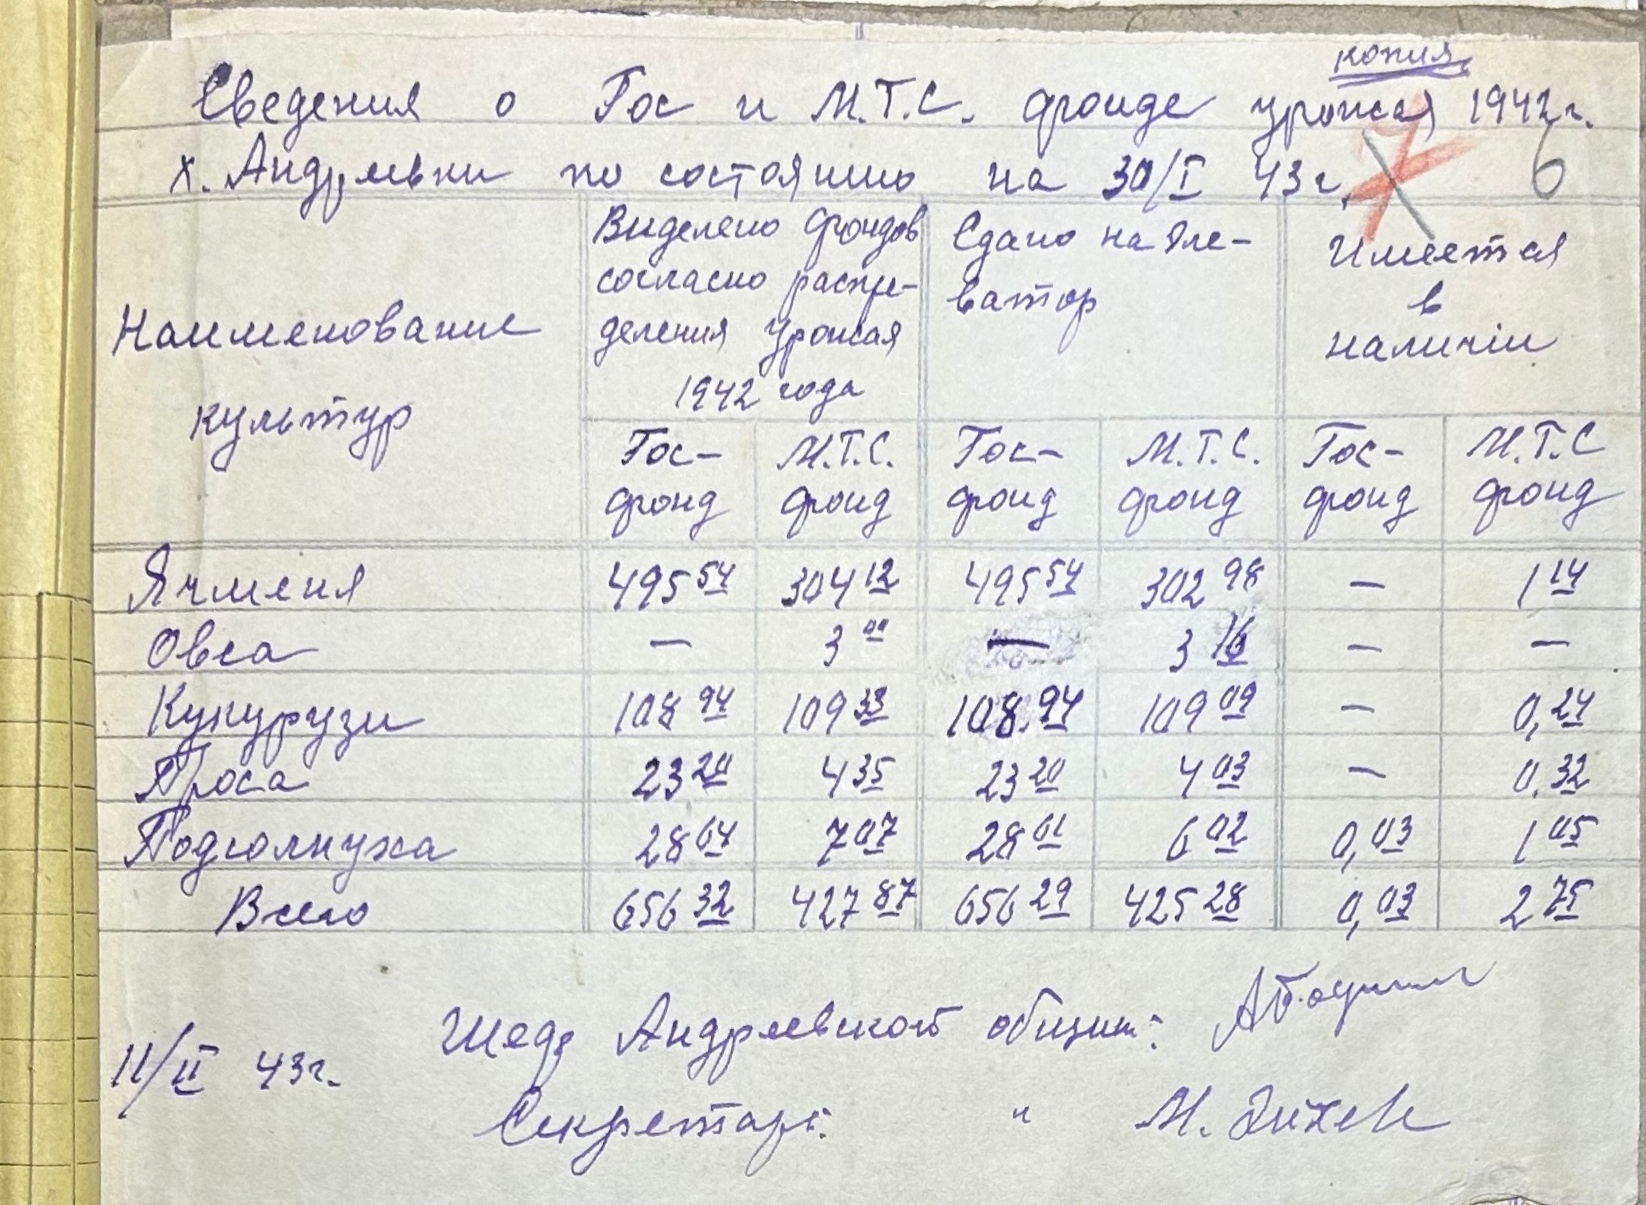 копия
Сведения о Гос и М.Т.С. фонде урожая 1942 г.
х. Андреевки по состоянию на 30/I 43 г. 7 6
Наименование культур
Виделено фондов согласно распре-
деления урожая 1942 года
Сдано на Эле-
ватор
Имеется в наличіи
Гос-фонд М.Т.С. фонд Гос-фонд М.Т.С. фонд Гос-фонд М.Т.С фонд
Ячменя 495 54 304 12 495 54 302 98 — 1 14
Овса — 3 00 — 3 16 — —
Кукурузи 108 94 109 33 108.94 109 09 — 0,24
Проса 23 20 4 35 23 20 4 03 — 0,32
Подсолнуха 28 64 7 07 28 61 6 02 0,03 1 05
Всего 656 32 427 87 656 29 425 28 0,03 2 75
Андреевской общини:
11/II 43 г.
Секретарь: " М.